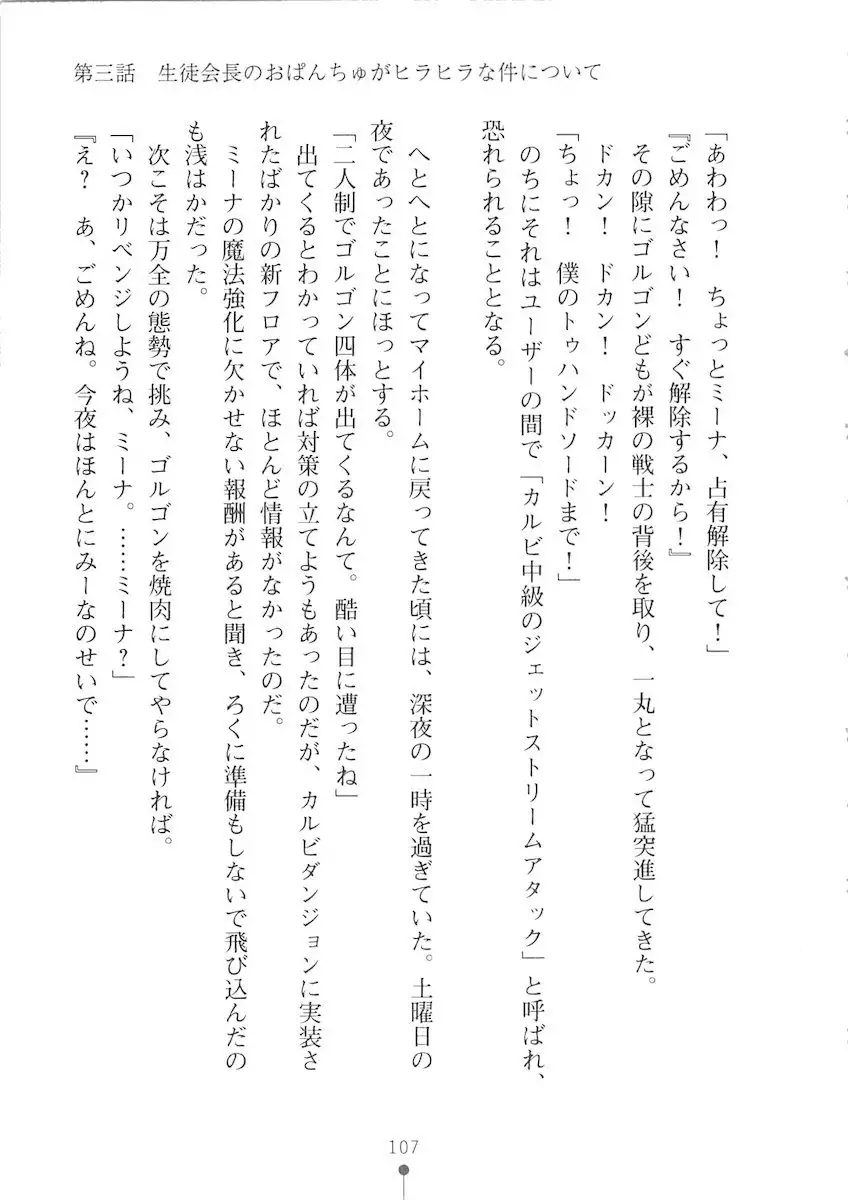 第三話　生徒会長のおぱんちゅがヒラヒラな件について
「あわわっ！　ちょっとミーナ、占有解除して！」
『ごめんなさい！　すぐ解除するから！』
その隙にゴルゴンどもが裸の戦士の背後を取り、一丸となって猛突進してきた。
ドカン！　ドカン！　ドッカーン！
「ちょっ！　僕のトゥハンドソードまで！」
のちにそれはユーザーの間で「カルビ中級のジェットストリームアタック」と呼ばれ、
恐れられることとなる。
へとへとになってマイホームに戻ってきた頃には、深夜の一時を過ぎていた。土曜日の
夜であったことにほっとする。
「二人制でゴルゴン四体が出てくるなんて。酷い目に遭ったね」
出てくるとわかっていれば対策の立てようもあったのだが、カルビダンジョンに実装さ
れたばかりの新フロアで、ほとんど情報がなかったのだ。
ミーナの魔法強化に欠かせない報酬があると聞き、ろくに準備もしないで飛び込んだの
も浅はかだった。
次こそは万全の態勢で挑み、ゴルゴンを焼肉にしてやらなければ。
「いつかリベンジしようね、ミーナ。……ミーナ？」
『え？　あ、ごめんね。今夜はほんとにみーなのせいで……』
107